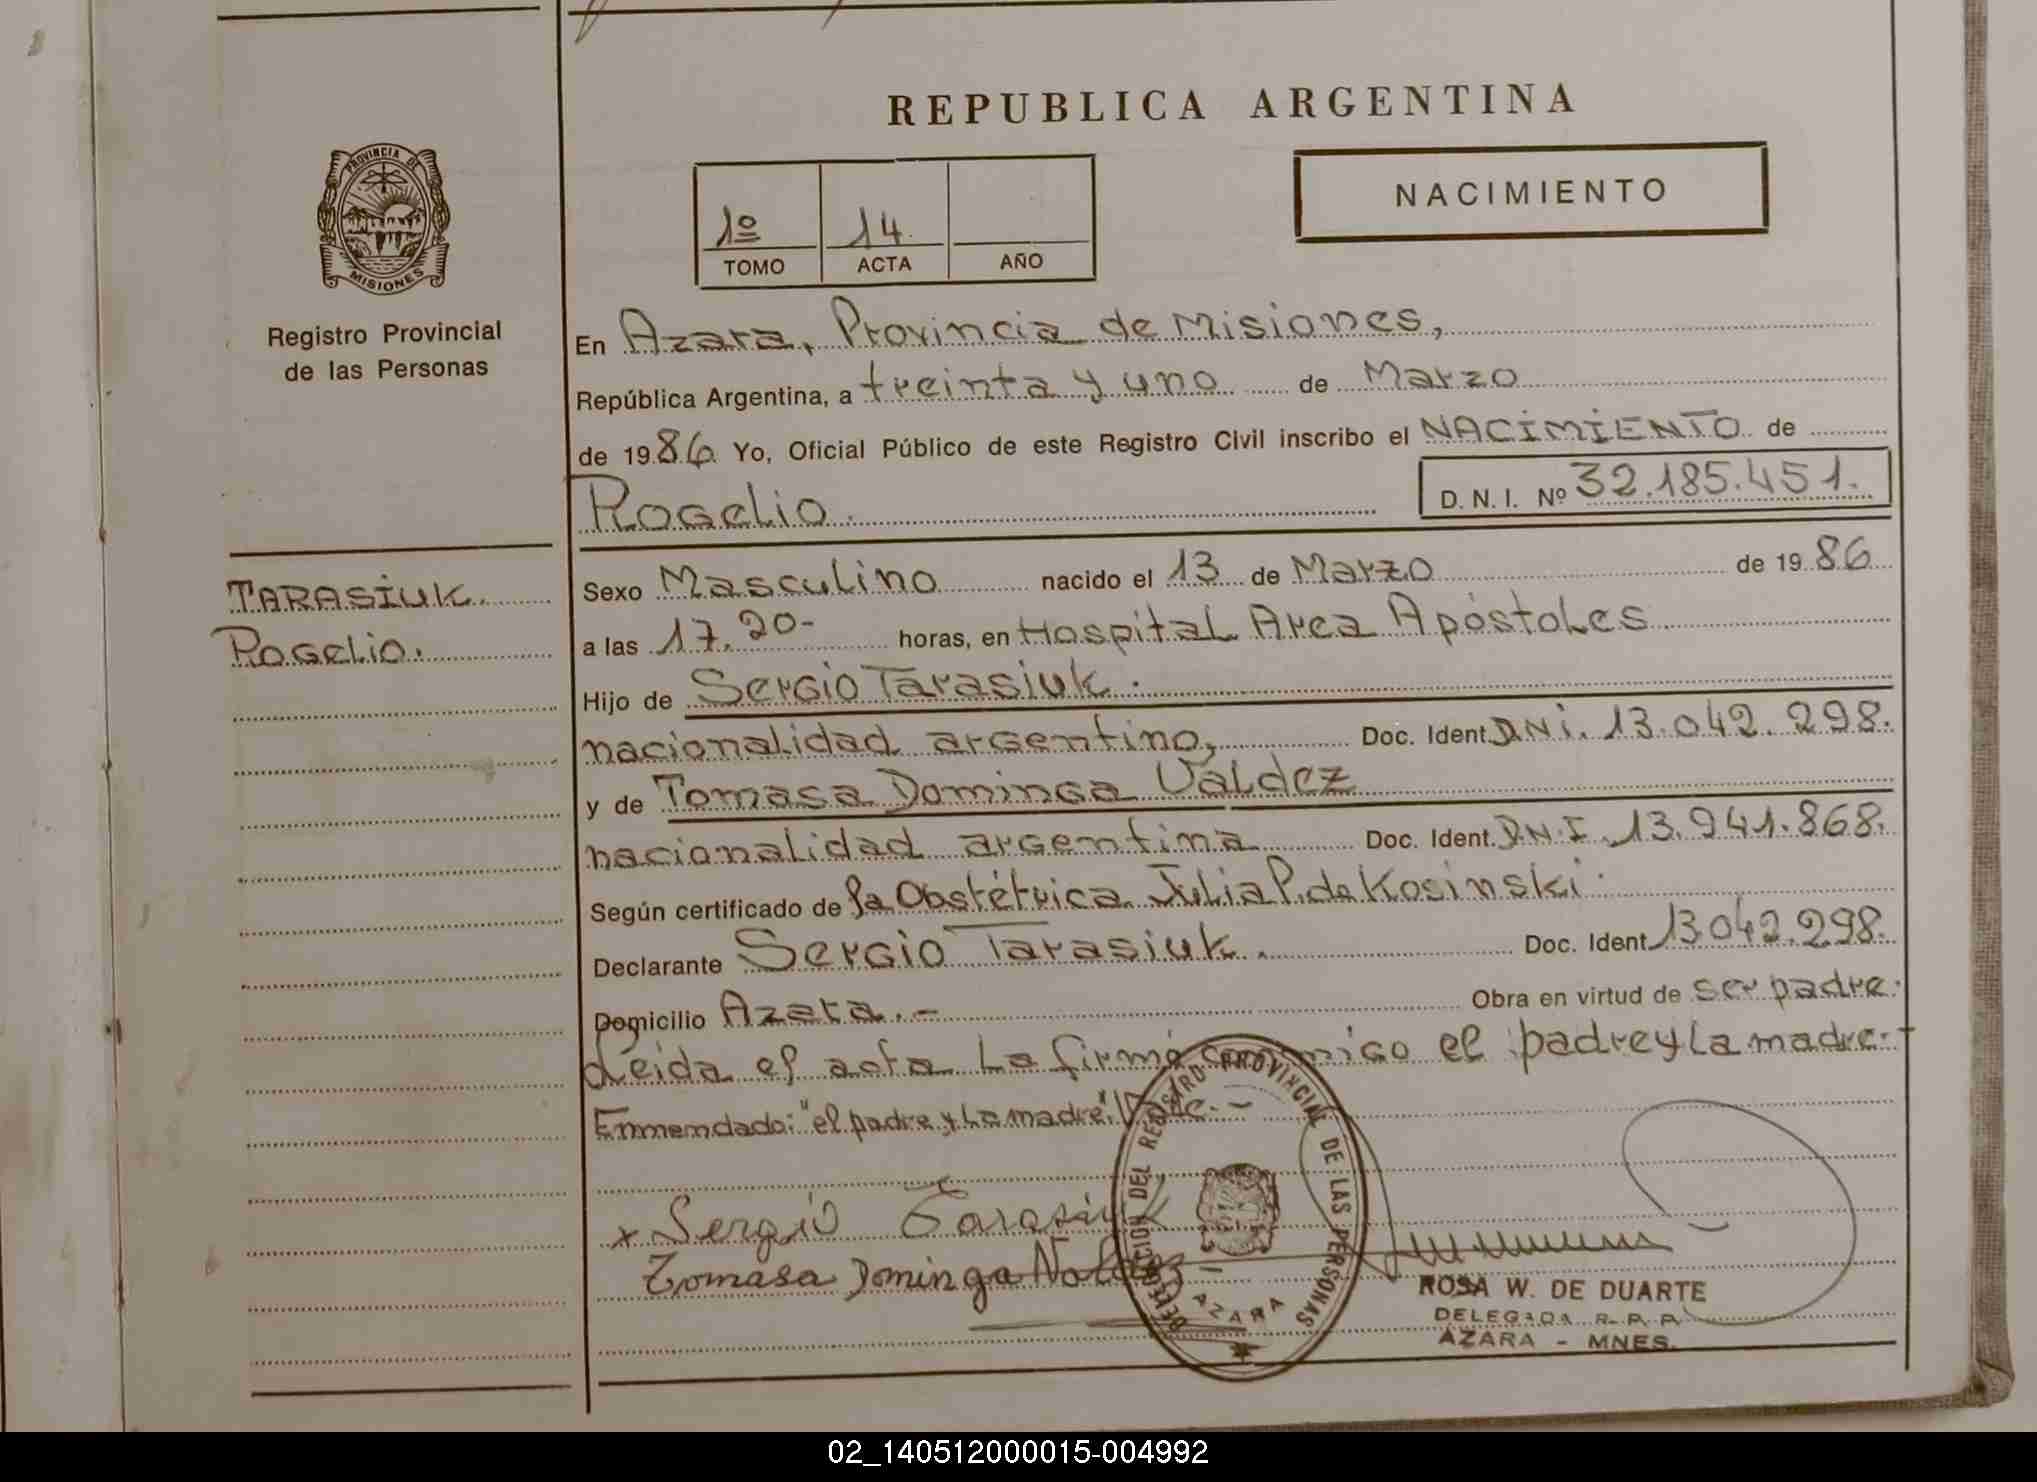 REPUBLICA ARGENTINA
PROVINCIA DE
MISIONES
Registro Provincial
de las Personas
1º 14.
TOMO ACTA AÑO
NACIMIENTO
En Azara, Provincia de Misiones,
República Argentina, a treinta y uno de Marzo
de 1986 Yo, Oficial Público de este Registro Civil inscribo el NACIMIENTO de
Rogelio. D. N. I. Nº 32.185.451.
TARASIUK.
Rogelio.
Sexo Masculino nacido el 13 de Marzo de 1986
a las 17,20- horas, en Hospital Area Apóstoles
Hijo de Sergio Tarasiuk.
nacionalidad argentino, Doc. Ident. DNI. 13.042.298.
y de Tomasa Dominga Valdez
nacionalidad argentina Doc. Ident. D.N.I. 13.941.868.
Según certificado de la Obstétrica Julia P. de Kosinski.
Declarante Sergio Tarasiuk. Doc. Ident. 13.042.298.
Domicilio Azara.- Obra en virtud de ser padre.
Leida el acta la firmó conmigo el padre y la madre.-
Enmendado: "el padre y la madre". Vale.-
x Sergio Tarasiuk
Tomasa Dominga Valdez
DELEGACION DEL REGISTRO PROVINCIAL DE LAS PERSONAS
AZARA
ROSA W. DE DUARTE
DELEGADA R. P. P.
AZARA - MNES.
02_140512000015-004992